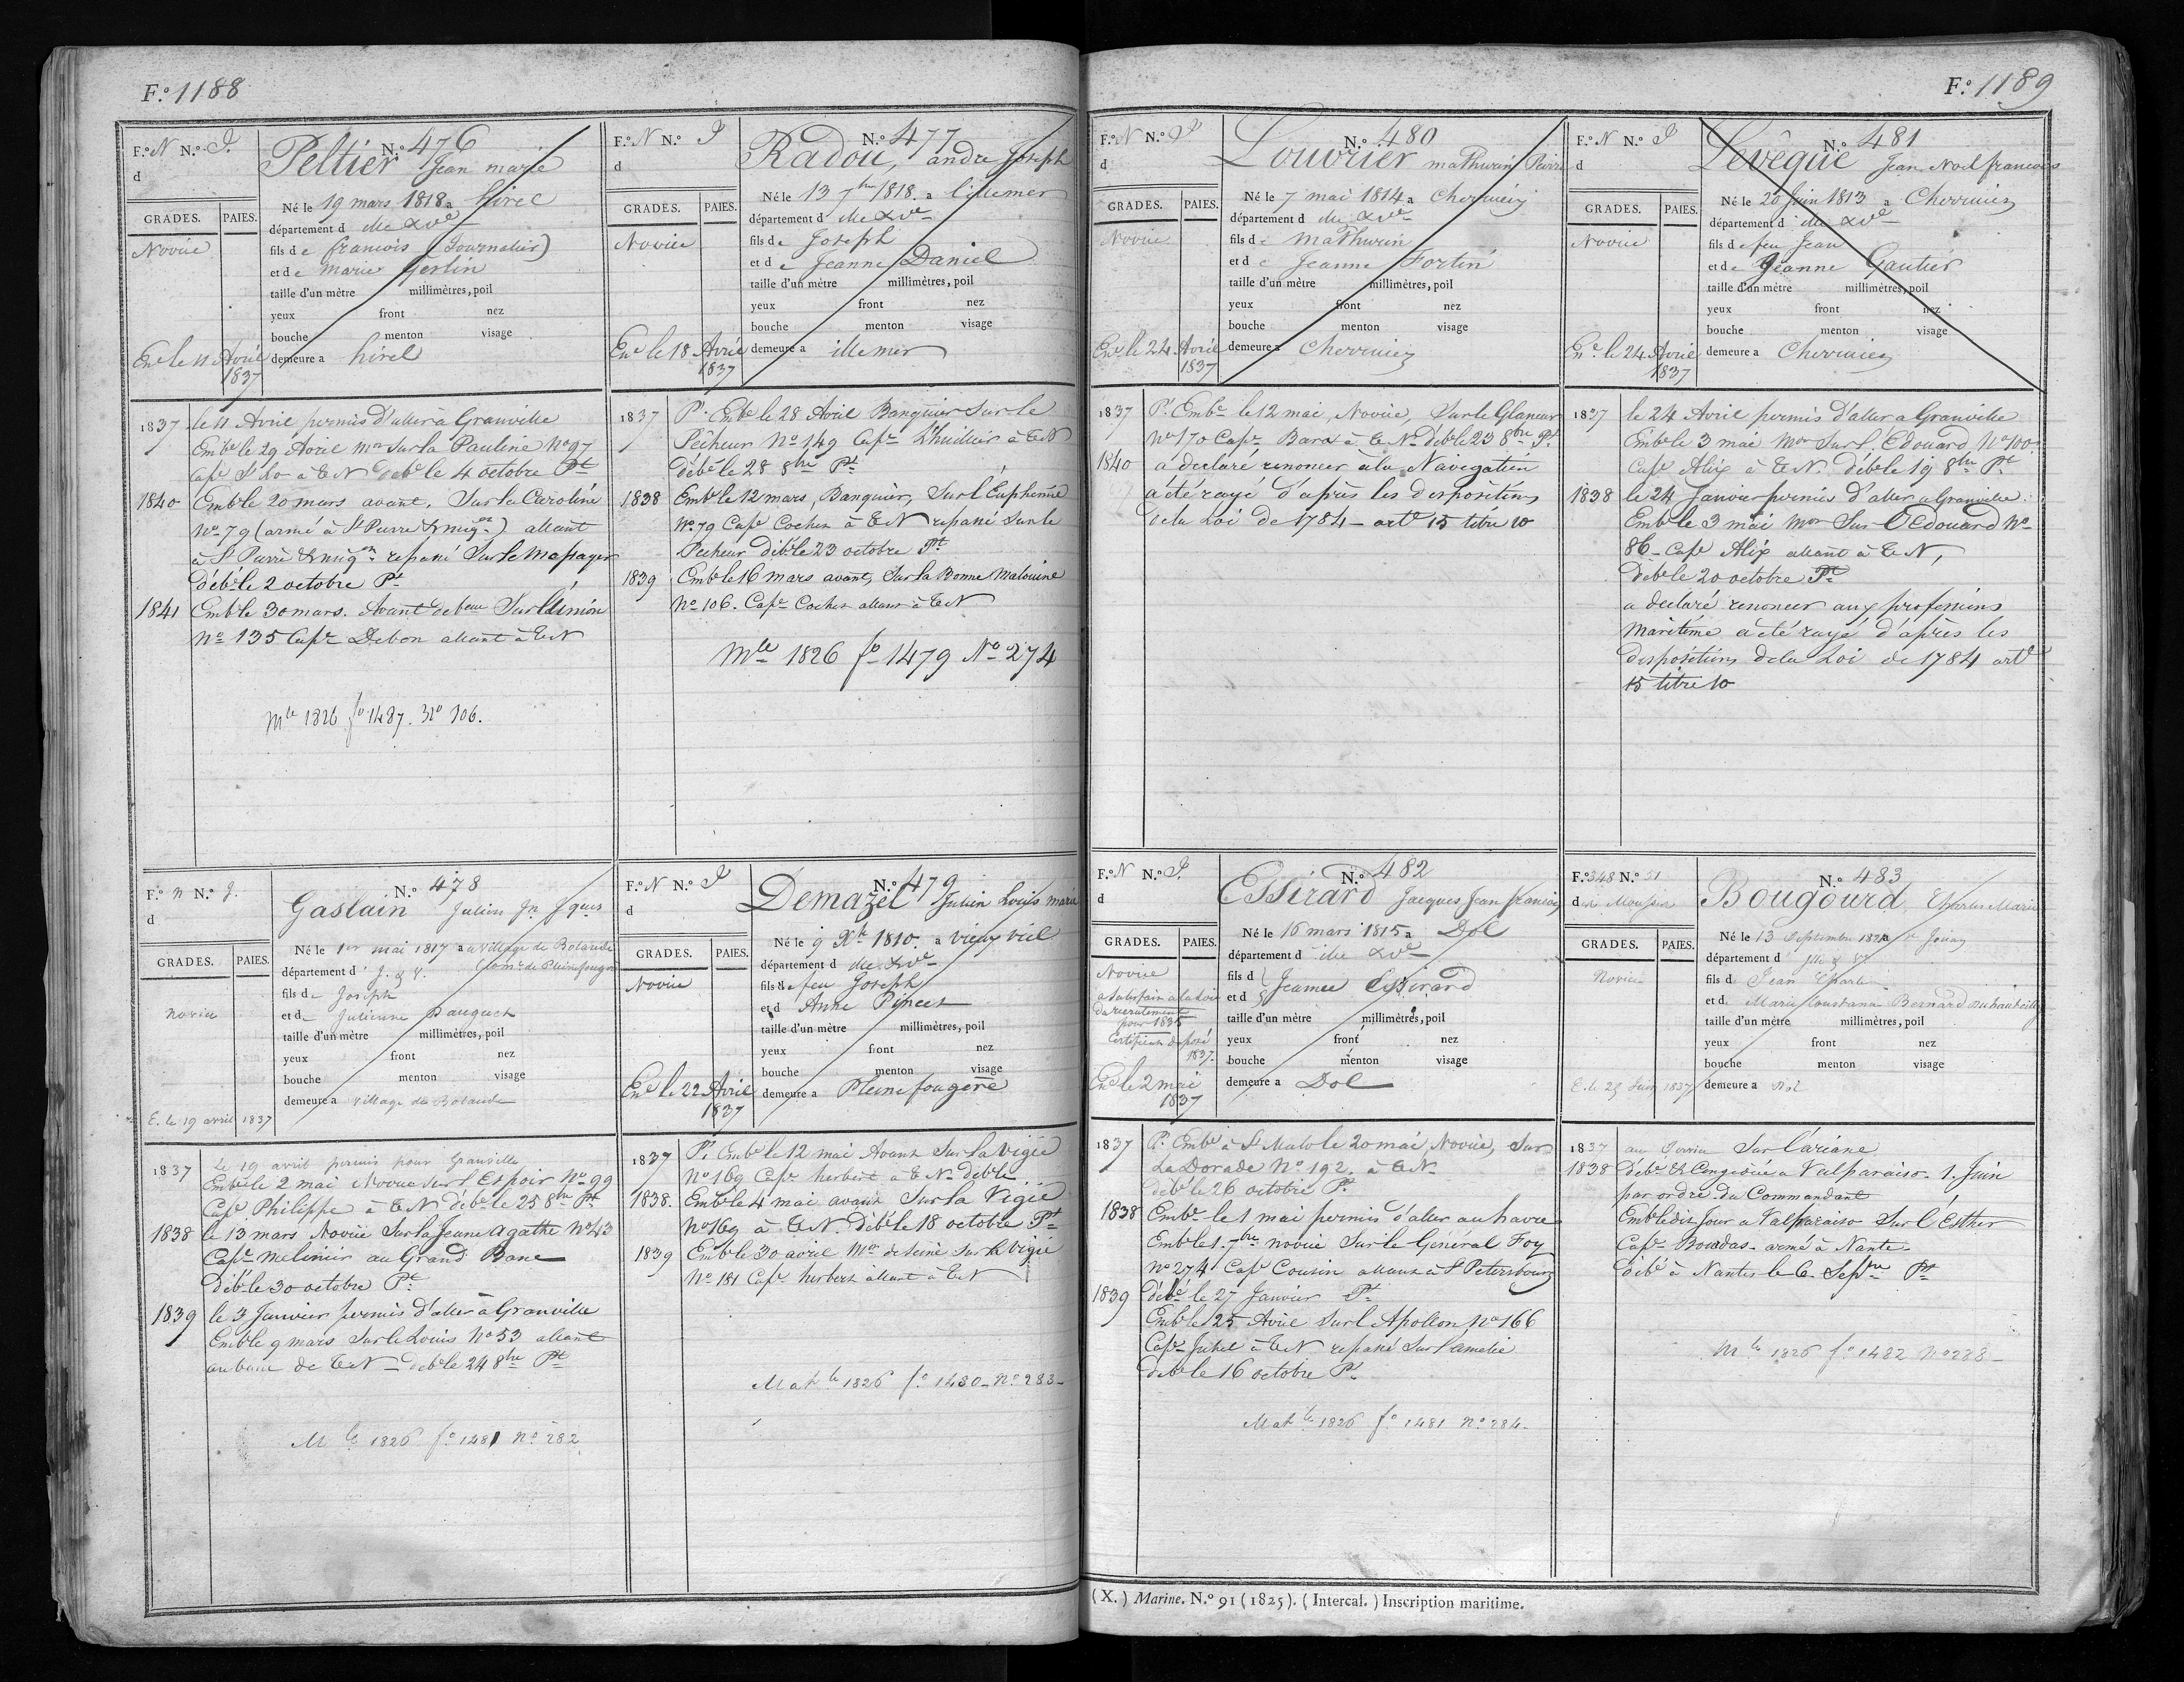 F.º 1188
F.º N N.º P.
d
N.º 476
Peltier Jean marie
GRADES. PAIES.
Né le 19 mars 1818 a hirel
département d Ille & Vne
fils de francois (Journalier)
et de marie Gerlin
Novice
taille d'un mètre millimètres, poil
yeux front nez
bouche menton visage
demeure a hirel
Enr le 11 Avril
1837
1837 le 11 Avril permis d'aller à Granville
Embe le 29 Avril mor sur la Pauline No 97
Cape à TN débe le 4 octobre Pt
1840 Embe le 20 mars avant, Sur la Caroline
No 79 (armé à St Pierre & miqon) allant
à St Pierre & miqon repassé Sur le Messager
débe le 2 octobre Pt
1841 Embe le 30 mars. Avant de beau Sur L'union
No 135 Cape Debon allant à TN
Mle 1826 fo 1487. No 306.
F.º N N.º P
d
N.º 477
Radou, andre Joseph
GRADES. PAIES.
Né le 13 7bre 1818 a lillemer
département d Ille & Vne
fils de Joseph
et de Jeanne Daniel
Novice
taille d'un mètre millimètres, poil
yeux front nez
bouche menton visage
demeure a illemer
Enr le 18 Avril
1837
1837 Pt. Embe le 28 Avril Banquier Sur le
Pêcheur No 149 Cape L'huillier à TN
débe le 28 8bre Pt
1838 Embe le 12 mars, Banquier, Sur L'Euphemie
No 79 Cape Cochen à TN repassé Sur le
Pecheur débe le 23 octobre Pt
1839 Embe le 16 mars avant, Sur la Bonne Malouine
No 106. Cape Cochen allant à TN
Mle 1826 fo 1479 No 274
F.º N N.º P.
d
N.º 478
Gaslain Julien Jn Jques
GRADES. PAIES.
Né le 1er mai 1817 a village de Bolande
département d' I. & V. (Comne de Pleinefougere
fils de Joseph
et de Julienne Dauguet
novice
taille d'un mètre millimètres, poil
yeux front nez
bouche menton visage
demeure a village de Bolande
E. le 19 avril 1837
1837 Le 19 avril permis pour Granville
Embe le 2 mai Novice Sur L'Espoir No 99
Cape Philippe à TN débe le 25 8bre Pt
1838 le 13 mars Novice Sur la Jeune Agathe No 43
Cape melinier au Grand Banc
débe le 30 octobre Pt
1839 le 3 Janvier permis d'aller à Granville
Embe le 9 mars Sur le Louis No 53 allant
au banc de TN débe le 24 8bre Pt
Mle 1826 fo 1481 No 282
F.º N N.º P
d
N.º 479
Demazel Julien Louis marie
GRADES. PAIES.
Né le 9 Xbre 1810. a vieux viel
département d Ille & Vne
fils de feu Joseph
et d Anne Pincet
Novice
taille d'un mètre millimètres, poil
yeux front nez
bouche menton visage
demeure a Pleine fougere
Enr le 22 Avril
1837
1837 Pt. Embe le 12 mai Avant Sur la vigie
No 169 Cape herbert à TN. débe le
1838. Embe le 4 mai avant Sur la Vigie
No 169 à TN. débe le 18 octobre Pt
1839 Embe le 30 avril Mor de seine Sur la vigie
No 181 Cape herbert allant à TN
Matle 1826 fo 1480 No 283
F.º 1189
F.º N N.º P
d
N.º 480
Louvrier mathurin Pierre
GRADES. PAIES.
Né le 7 mai 1814 a Cherrueix
département d Ille & Vne
fils de Mathurin
et de Jeanne Fortin
Novice
taille d'un mètre millimètres, poil
yeux front nez
bouche menton visage
demeure a Cherrueix
Enr le 24 Avril
1837
1837 Pt. Embe le 12 mai, Novice, Sur le Glaneur
No 170 Cape Barx à TN. débe le 23 8bre Pt
1840 a declaré renoncer à la Navigation
a été rayé d'après les dispositions
de la Loi de 1784 - arte 15 titre 10
F.º N N.º P
d
N.º 481
Levêque Jean Noel francois
GRADES. PAIES.
Né le 20 Juin 1813 a Cherrueix
département d Ille & Vne
fils de feu Jean
et de Jeanne Gautier
Novice
taille d'un mètre millimètres, poil
yeux front nez
bouche menton visage
demeure a Cherrueix
Enr le 24 Avril
1837
1837 le 24 Avril permis d'aller a Granville
Embe le 3 mai Mor Sur L'Edouard No 100
Cape Alix à TN. débe le 19 8bre Pt
1838 le 24 Janvier permis d'aller a Granville
Embe le 3 mai Mor Sur L'Edouard No
86 - Cape Alix allant à TN,
débe le 20 octobre Pt
a declaré renoncer aux professions
maritime a été rayé d'après les
dispositions de la Loi de 1784 arte
15 titre 10
F.º N N.º P.
d
N.º 482
Essirard Jacques Jean francois
GRADES. PAIES.
Né le 16 mars 1815 a Dol
département d Ille & Vne
fils d
et d Jeanne Essirard
Novice
a satisfait a la Loi
du recrutement
pour 1835
Certificat deposé
1837.
taille d'un mètre millimètres, poil
yeux front nez
bouche menton visage
demeure a Dol
Enr le 2 mai
1837
1837 Pt. Embe à St Malo le 20 mai, Novice, Sur
La Dorade No 192. à TN.
débe le 26 octobre Pt
1838 Embe le 1 mai permis d'aller au havre
Embe le 1. 7bre novice Sur le Général Foy
No 274 Cape Cousin allant à St Petersbourg
1839 débe le 27 Janvier Pt
Embe le 25 Avril Sur L'Apollon No 166
Cape Juhel à TN repassé Sur L'amelie
débe le 16 octobre Pt
Matle 1826 fo 1481 No 284
F.º 348 N.º 51
d des Mousses
N.º 483
Bougourd, Charles Marie
GRADES. PAIES.
Né le 13 Septembre a St Jouan
département d Ille & Vne
fils d Jean Charles
et d Marie Constance Bernard
Novice
taille d'un mètre millimètres, poil
yeux front nez
bouche menton visage
demeure a Dol
E. le 29 Juin 1837
1837 au Service Sur L'ariane
1838 débe & Congédié a Valparaiso. 1. Juin
par ordre du Commandant
Embe ledit Jour a Valparaiso Sur L'Esther
Cape Bordas - armé à Nantes
débe à Nantes le 6 Septre Pt
Mle 1826 fo 1482 No 288
(X.) Marine. N.º 91 (1825). (Intercal.) Inscription maritime.